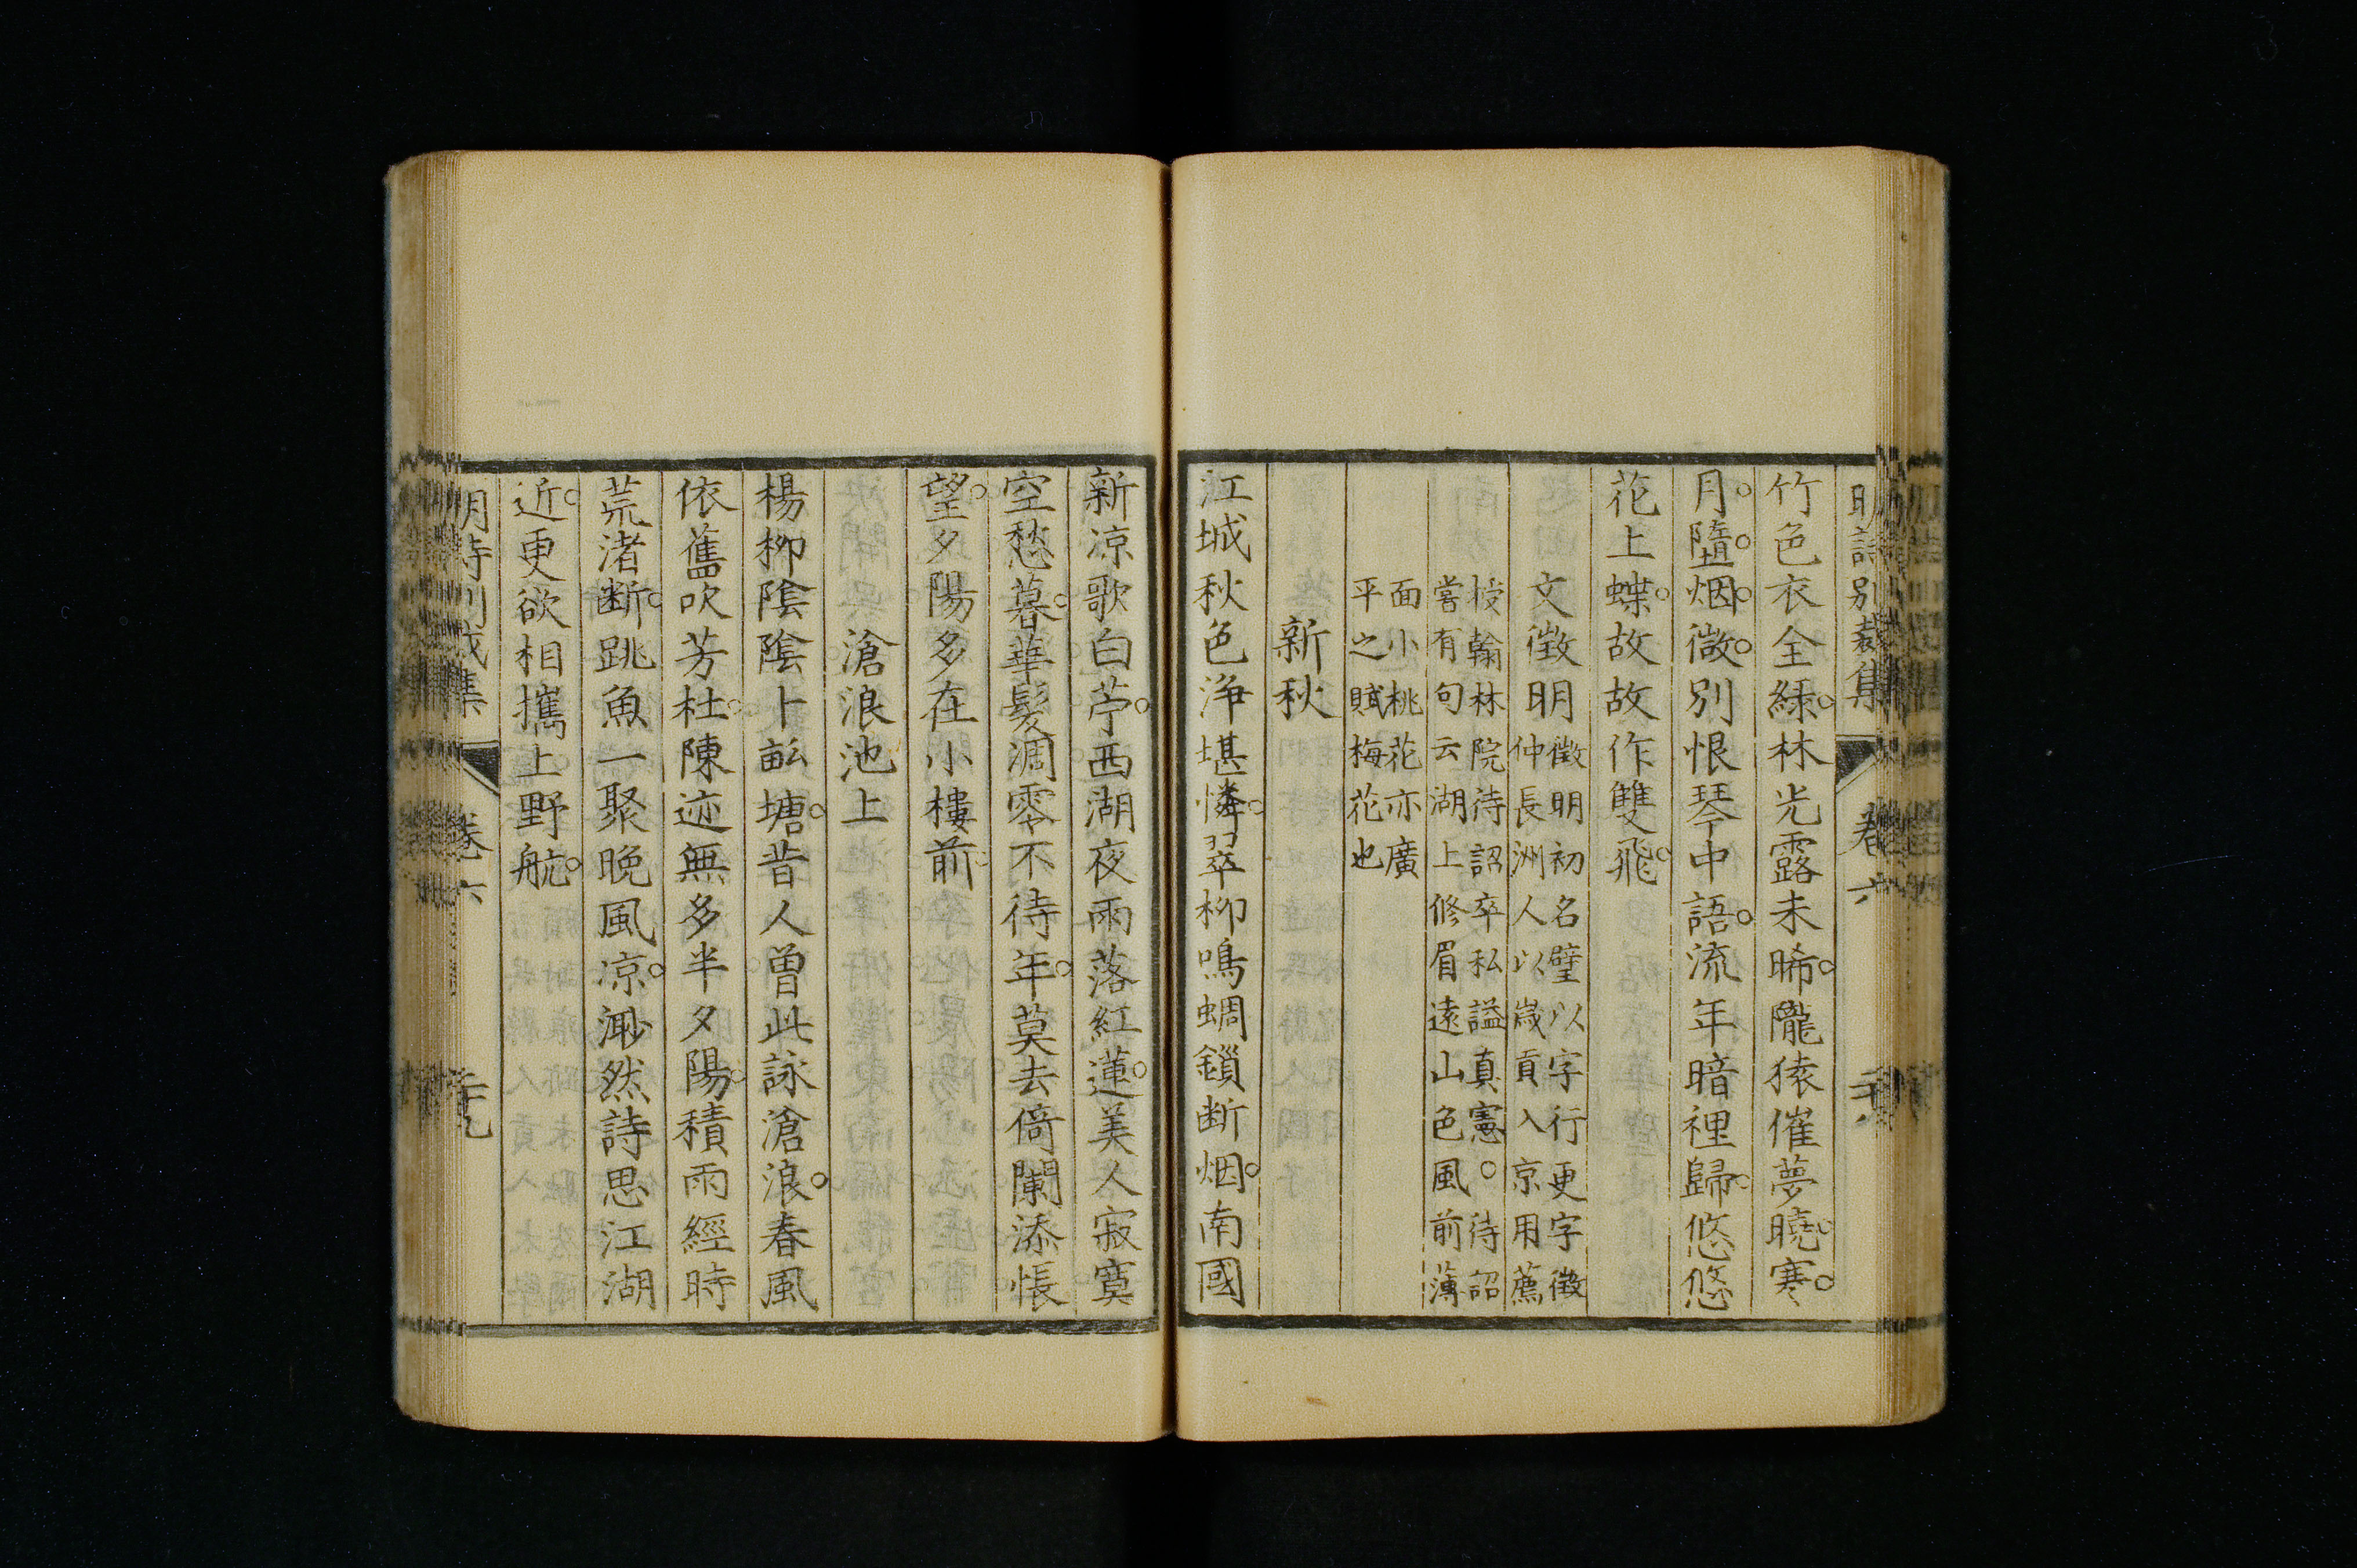 明詩別裁集 卷六 二十八
竹色衣全綠。林光露未晞。隴猿催夢曉。寒。
月。墮。烟。微。別恨琴中語。流年暗裡歸。悠悠
花上蝶。故故作雙飛。
文徵明 徵明初名璧以字行更字徵
仲長洲人以歲貢入京用薦
授翰林院待詔卒私謚真憲。待詔
嘗有句云湖上修眉遠山色風前薄
面小桃花亦廣
平之賦梅花也
新秋
江城秋色淨堪憐。翠柳鳴蜩鎖断烟。南國
新涼歌白苧。西湖夜雨落紅蓮。美人寂寞
空愁暮。華髪凋零不待年。莫去倚闌添悵
望。夕陽多在小樓前。
滄浪池上
楊柳陰陰卜畝塘。昔人曾此詠滄浪。春風
依舊吹芳杜。陳迹無多半夕陽。積雨經時
荒渚断。跳魚一聚晚風涼。渺然詩思江湖
近。更欲相攜上野航。
明詩別裁集 卷六 二十九